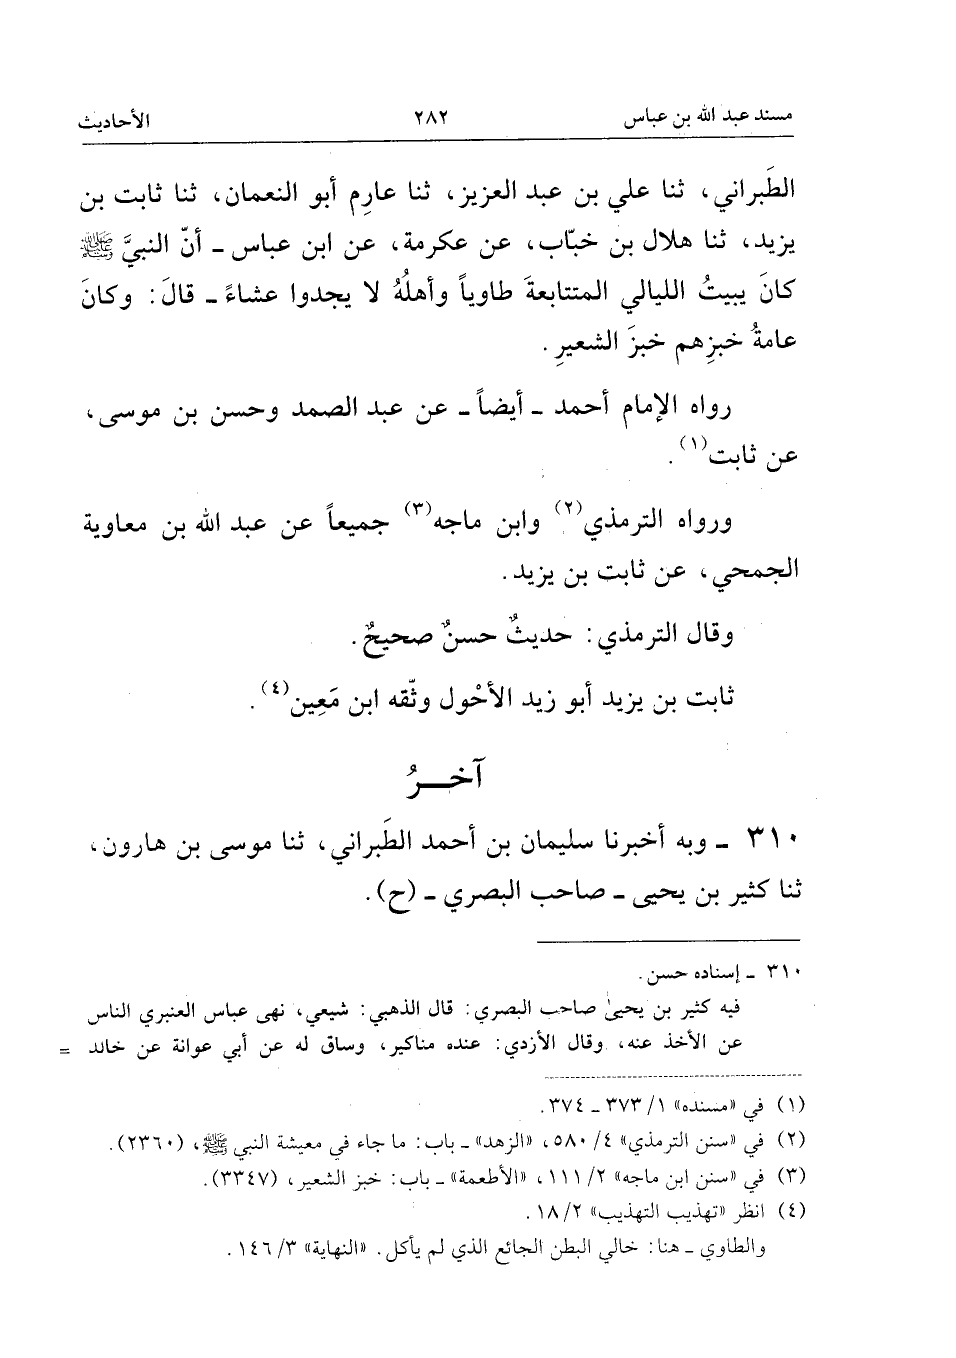 مسند عبد الله بن عباس ٢٨٢ الأحاديث
الطَبراني، ثنا علي بن عبد العزيز، ثنا عارِم أبو النعمان، ثنا ثابت بن
يزيد، ثنا هلال بن خبّاب، عن عكرمة، عن ابن عباس ـ أنّ النبيَّ ﷺ
كانَ يبيتُ الليالي المتتابعةَ طاوياً وأهلُهُ لا يجدوا عشاءً ـ قالَ: وكانَ
عامةُ خبزِهم خبزَ الشعيرِ.
رواه الإمام أحمد ـ أيضاً ـ عن عبد الصمد وحسن بن موسى،
عن ثابت(١).
ورواه الترمذي(٢) وابن ماجه(٣) جميعاً عن عبد الله بن معاوية
الجمحي، عن ثابت بن يزيد.
وقال الترمذي: حديثٌ حسنٌ صحيحٌ.
ثابت بن يزيد أبو زيد الأحْول وثّقه ابن مَعِين(٤).
آخـــرُ
٣١٠ ـ وبه أخبرنا سليمان بن أحمد الطَبراني، ثنا موسى بن هارون،
ثنا كثير بن يحيى ـ صاحب البصري ـ (ح).
٣١٠ ـ إسناده حسن.
فيه كثير بن يحيىٰ صاحب البصري: قال الذهبي: شيعي، نهى عباس العنبري الناس
عن الأخذ عنه، وقال الأزدي: عنده مناكير، وساق له عن أبي عوانة عن خالد =
(١) في «مسنده» ١/ ٣٧٣ ـ ٣٧٤.
(٢) في «سنن الترمذي» ٤/ ٥٨٠، «الزهد» ـ باب: ما جاء في معيشة النبي ﷺ، (٢٣٦٠).
(٣) في «سنن ابن ماجه» ٢/ ١١١، «الأطعمة» ـ باب: خبز الشعير، (٣٣٤٧).
(٤) انظر «تهذيب التهذيب» ٢/ ١٨.
والطاوي ـ هنا: خالي البطن الجائع الذي لم يأكل. «النهاية» ٣/ ١٤٦.